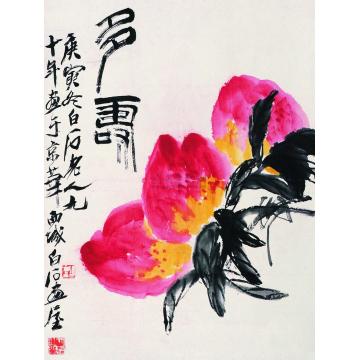 多壽
庚寅冬白石老人九
十年畫于京華西城白石畫屋